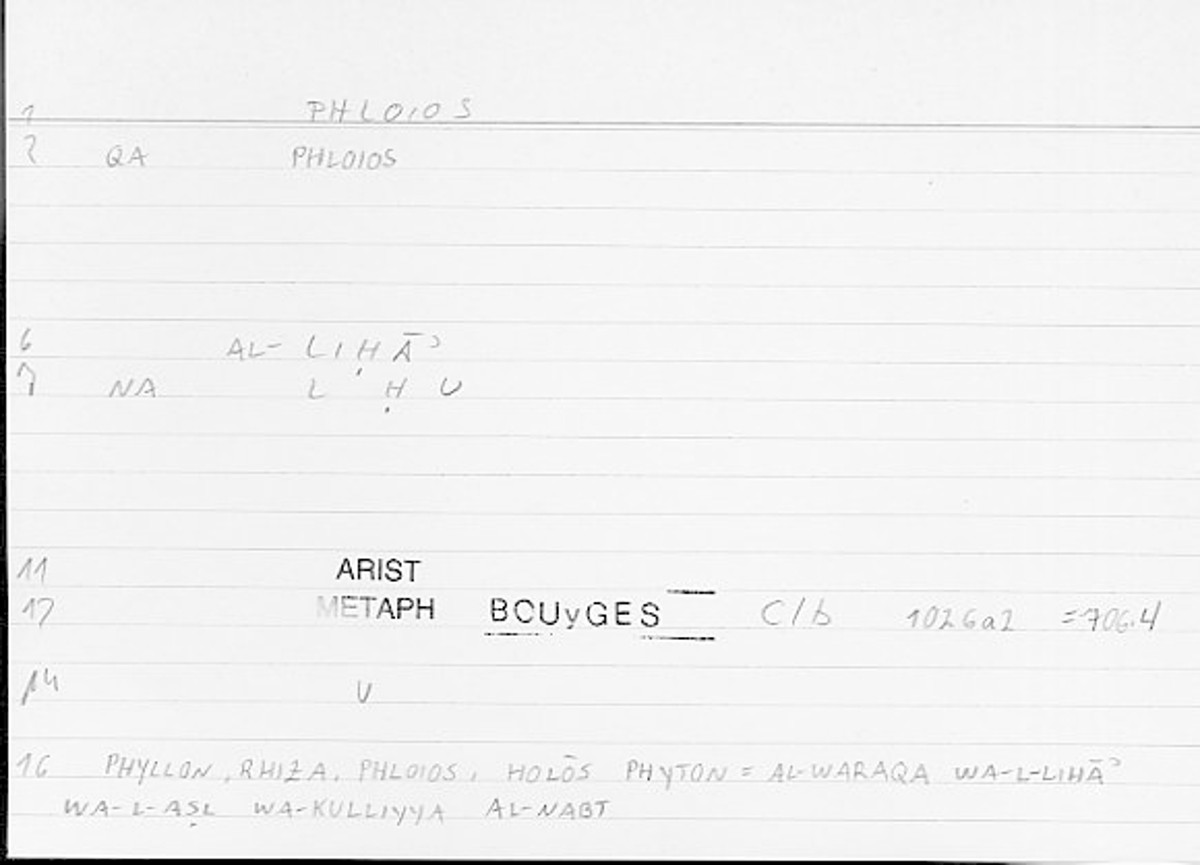 1 PHLOIOS
2 QA PHLOIOS
6 AL- LIḤĀʾ
7 NA L Ḥ U
11 ARIST
12 METAPH BOUyGES C/b 1026a2 =706.4
14 U
16 PHYLLON, RHIZA, PHLOIOS, HOLŌS PHYTON = AL-WARAQA WA-L-LIHĀʾ
WA-L-AṢL WA-KULLIYYA AL-NABT